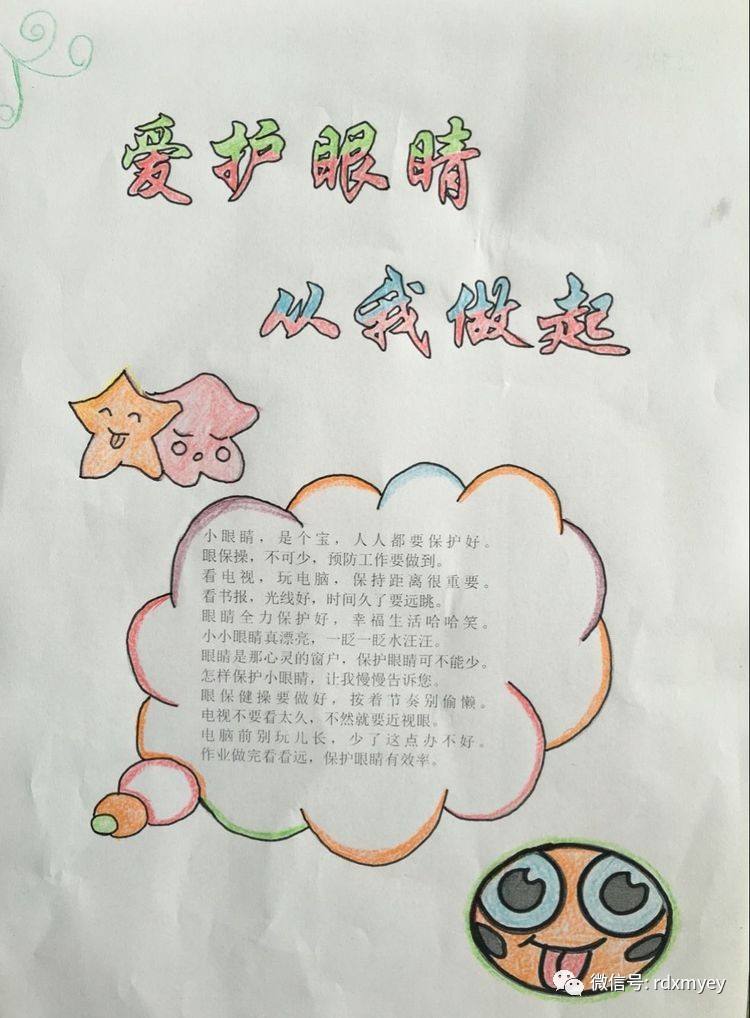 爱护眼睛
从我做起
小眼睛，是个宝，人人都要保护好。
眼保操，不可少，预防工作要做到。
看电视，玩电脑，保持距离很重要。
看书报，光线好，时间久了要远眺。
眼睛全力保护好，幸福生活哈哈笑。
小小眼睛真漂亮，一眨一眨水汪汪。
眼睛是那心灵的窗户，保护眼睛可不能少。
怎样保护小眼睛，让我慢慢告诉您。
眼保健操要做好，按着节奏别偷懒。
电视不要看太久，不然就要近视眼。
电脑前别玩儿长，少了这点办不好。
作业做完看看远，保护眼睛有效率。
微信号: rdxmyey